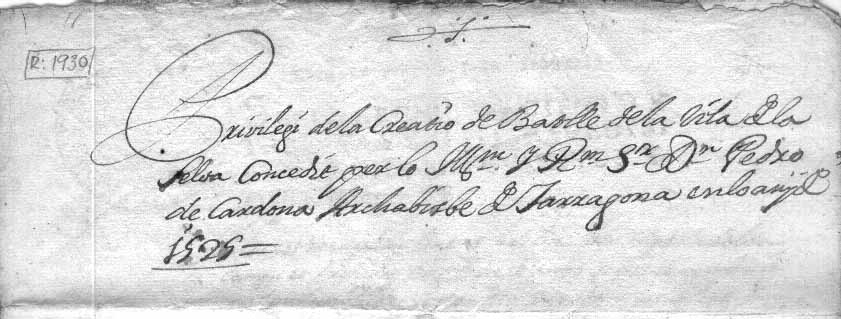 .1.
R: 1930
Privilegi de la Creatio de Batlle de la Vila de la
Selva Concedit per lo Illm. y Rm. Sr. Dn. Pedro
de Cardona Archabisbe de Tarragona en lo any de
1525=